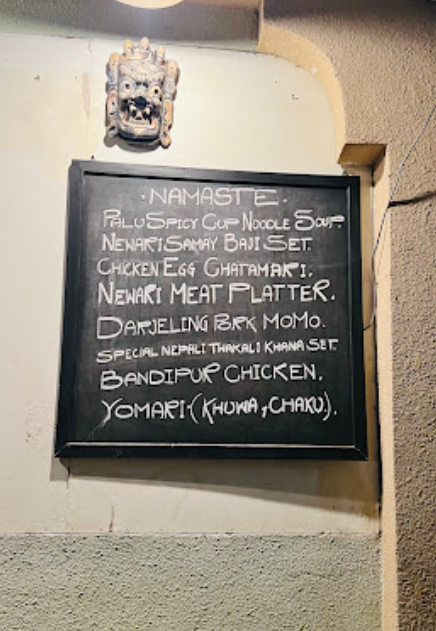 ·NAMASTE·
PALU SPICY CUP NOODLE SOUP.
NEWARI SAMAY BAJI SET.
CHICKEN EGG CHATAMARI.
NEWARI MEAT PLATTER.
DARJELING PORK MOMO.
SPECIAL NEPALI THAKALI KHANA SET.
BANDIPUR CHICKEN.
YOMARI-(KHUWA, CHAKU).